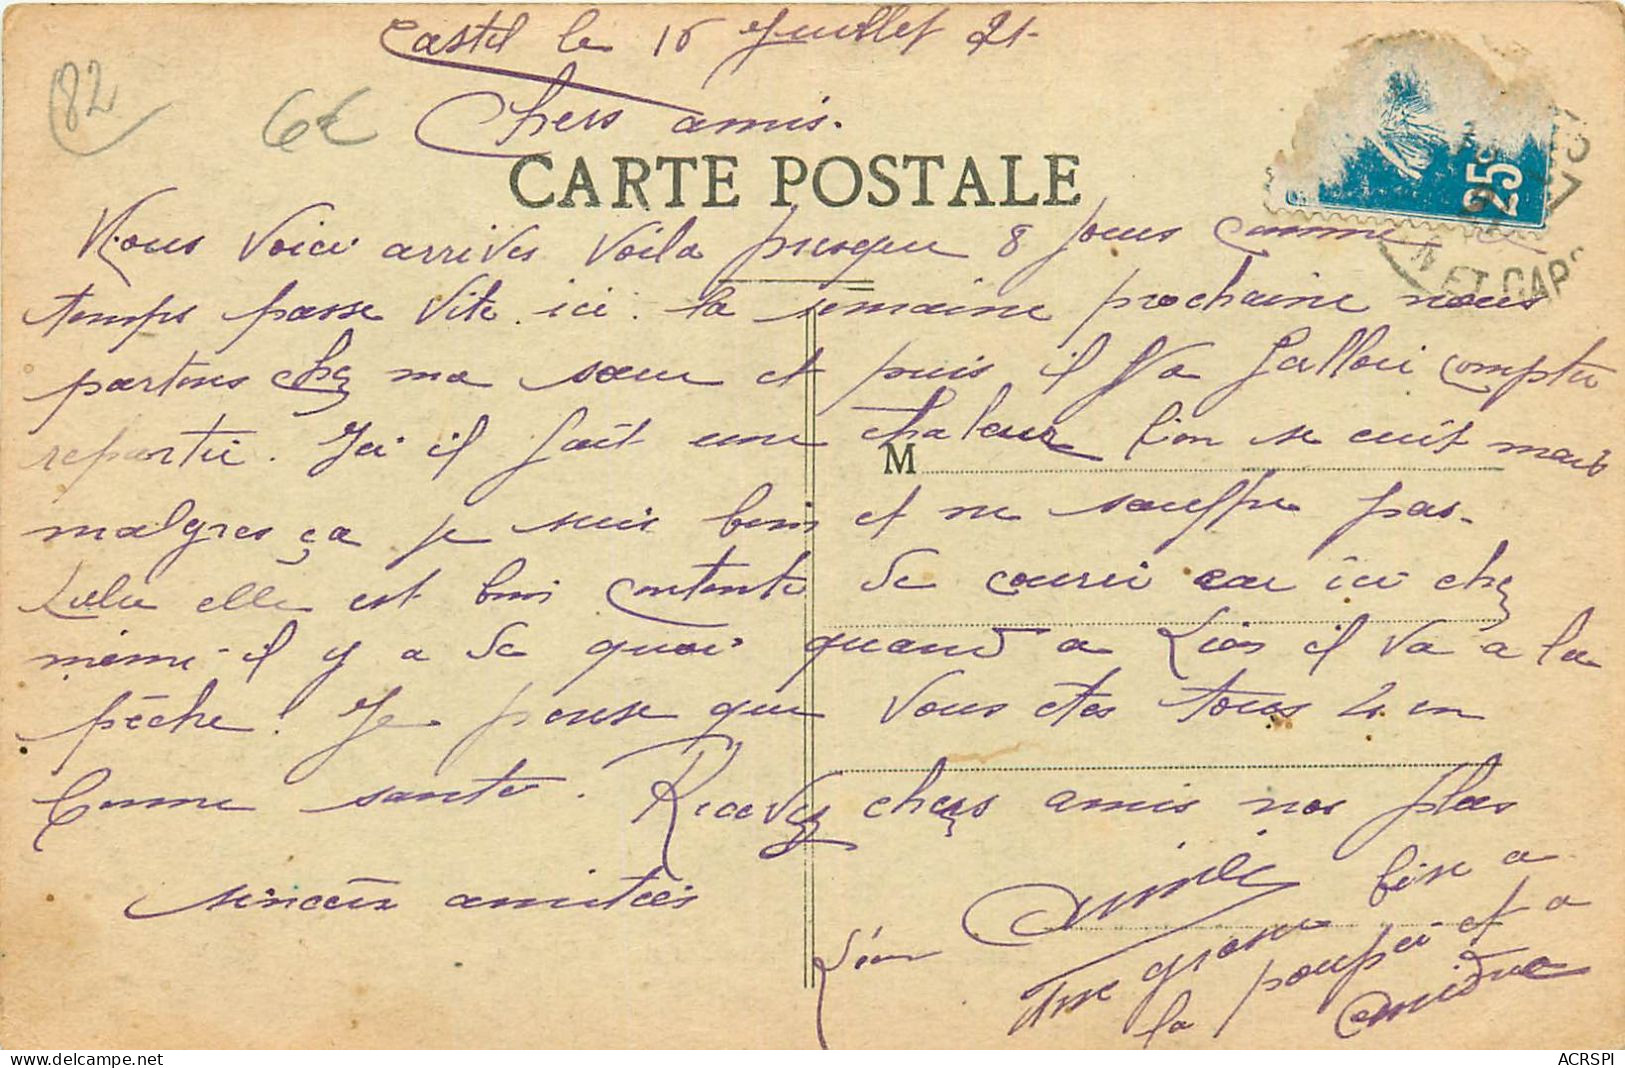 Castel le 16 Juillet 21-
82
6€
Chers amis.
CARTE POSTALE
25
N ET GAR
Nous voici arrives voila presque 8 jours comme ce
temps passe vite ici. la semaine prochaine nous
partons chez ma sœur et puis il va falloir compter
repartir. Ici il fait une chaleur l'on se cuit mais
M
malgres ça je suis bien et ne souffre pas.
Lulu elle est bien contente de courir car ici chez
même il y a de quoi quand a Léon il va a la
pêche! Je pense que vous etes tous 4 en
bonne santé. Recevez chers amis nos plus
sincères amitiées
Léon
Une grosse bise a
la poupée et a
ACRSPI